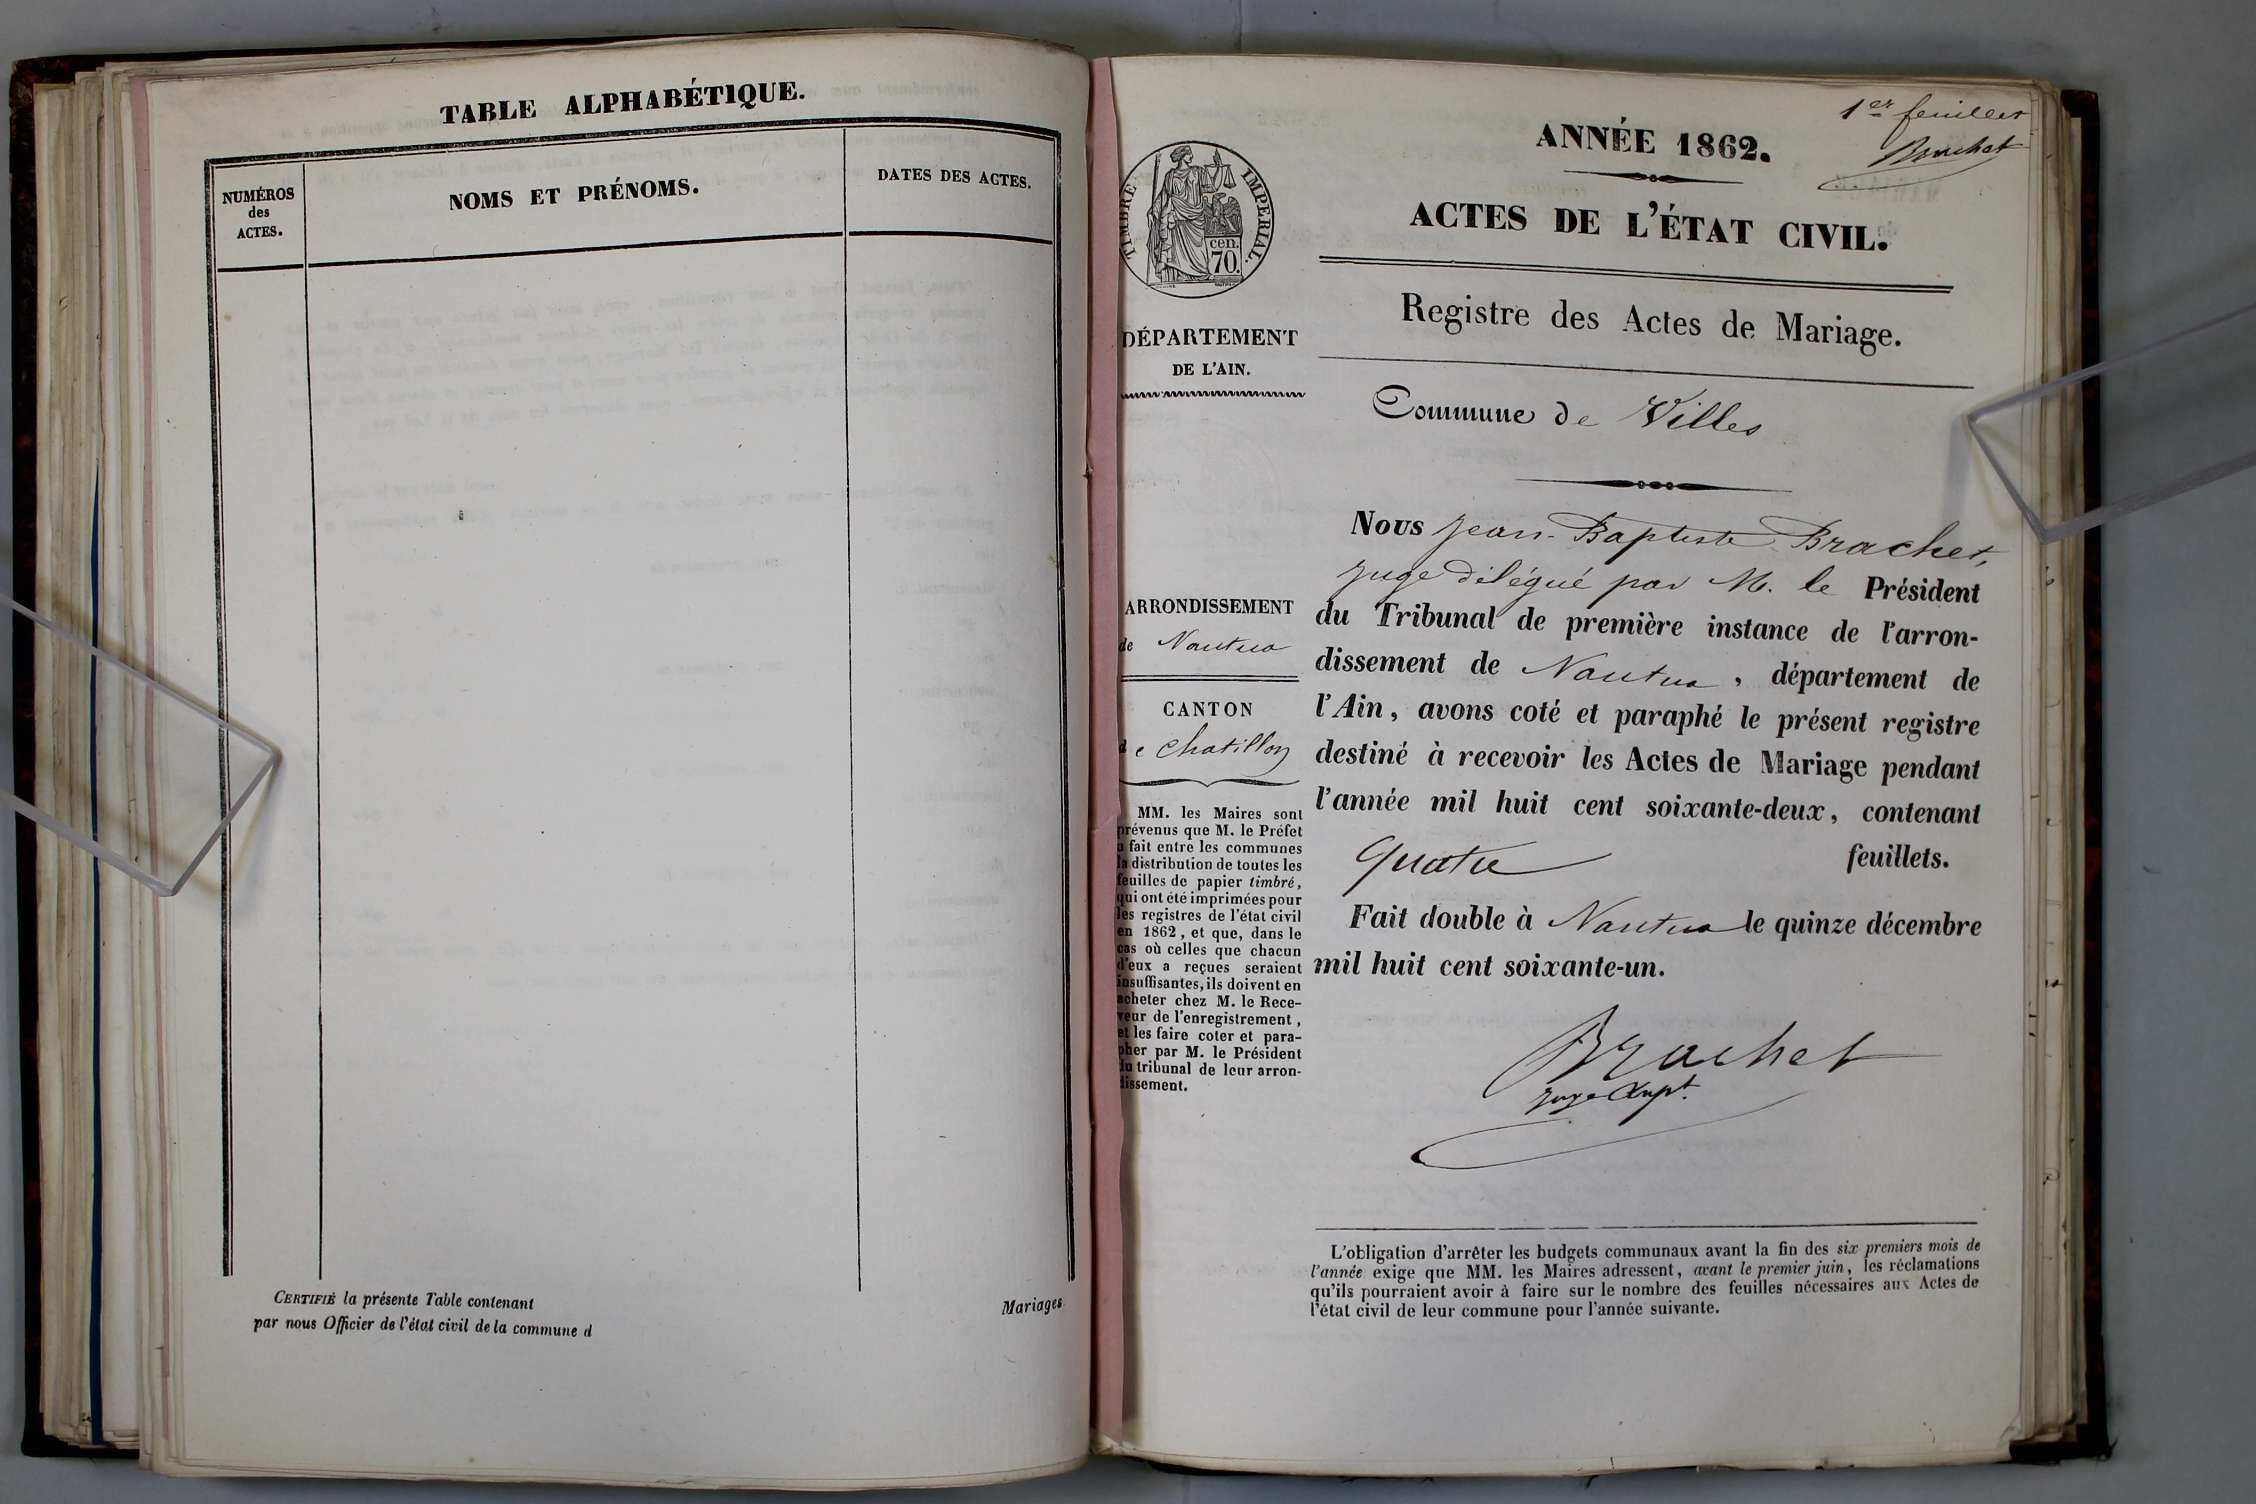 TABLE ALPHABÉTIQUE.
NUMÉROS
des
ACTES.
NOMS ET PRÉNOMS.
DATES DES ACTES.
CERTIFIÉ la présente Table contenant
par nous Officier de l'état civil de la commune d
Mariages
1er feuillet
Brachet
ANNÉE 1862.
ACTES DE L'ÉTAT CIVIL.
Registre des Actes de Mariage.
TIMBRE IMPERIAL.
cen.
70.
DÉPARTEMENT
DE L'AIN.
Commune de Villes
ARRONDISSEMENT
de Nantua
CANTON
de Chatillon
MM. les Maires sont
prévenus que M. le Préfet
a fait entre les communes
la distribution de toutes les
feuilles de papier timbré,
qui ont été imprimées pour
les registres de l'état civil
en 1862, et que, dans le
cas où celles que chacun
d'eux a reçues seraient
insuffisantes, ils doivent en
acheter chez M. le Rece-
veur de l'enregistrement,
et les faire coter et para-
pher par M. le Président
du tribunal de leur arron-
dissement.
Nous Jean-Baptiste Brachet,
juge délégué par M. le Président
du Tribunal de première instance de l'arron-
dissement de Nantua, département de
l'Ain, avons coté et paraphé le présent registre
destiné à recevoir les Actes de Mariage pendant
l'année mil huit cent soixante-deux, contenant
quatre feuillets.
Fait double à Nantua le quinze décembre
mil huit cent soixante-un.
Brachet
juge supt.
L'obligation d'arrêter les budgets communaux avant la fin des six premiers mois de
l'année exige que MM. les Maires adressent, avant le premier juin, les réclamations
qu'ils pourraient avoir à faire sur le nombre des feuilles nécessaires aux Actes de
l'état civil de leur commune pour l'année suivante.